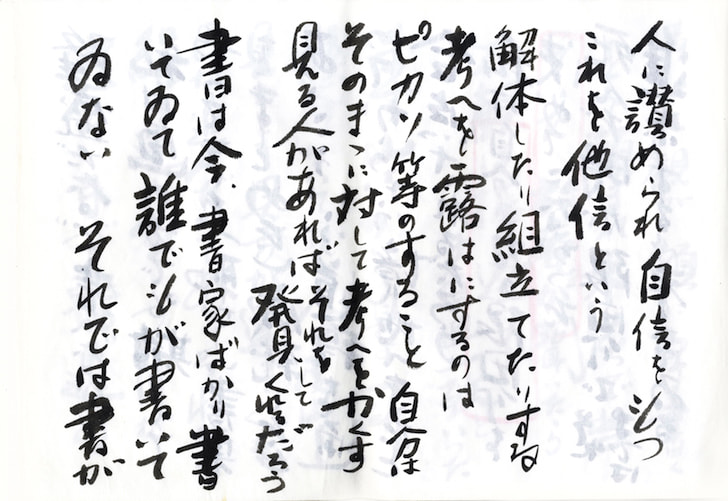 人に讃められ自信をもつ
これを他信という
解体したり組立てたりする
考へを露はにするのは
ピカソ等のすること 自分は
そのまゝに対して考へをかくす
見る人があればそれを
発見してくれるだろう
書は今、書家ばかり書
いてゐて誰でもが書いて
ゐない それでは書が